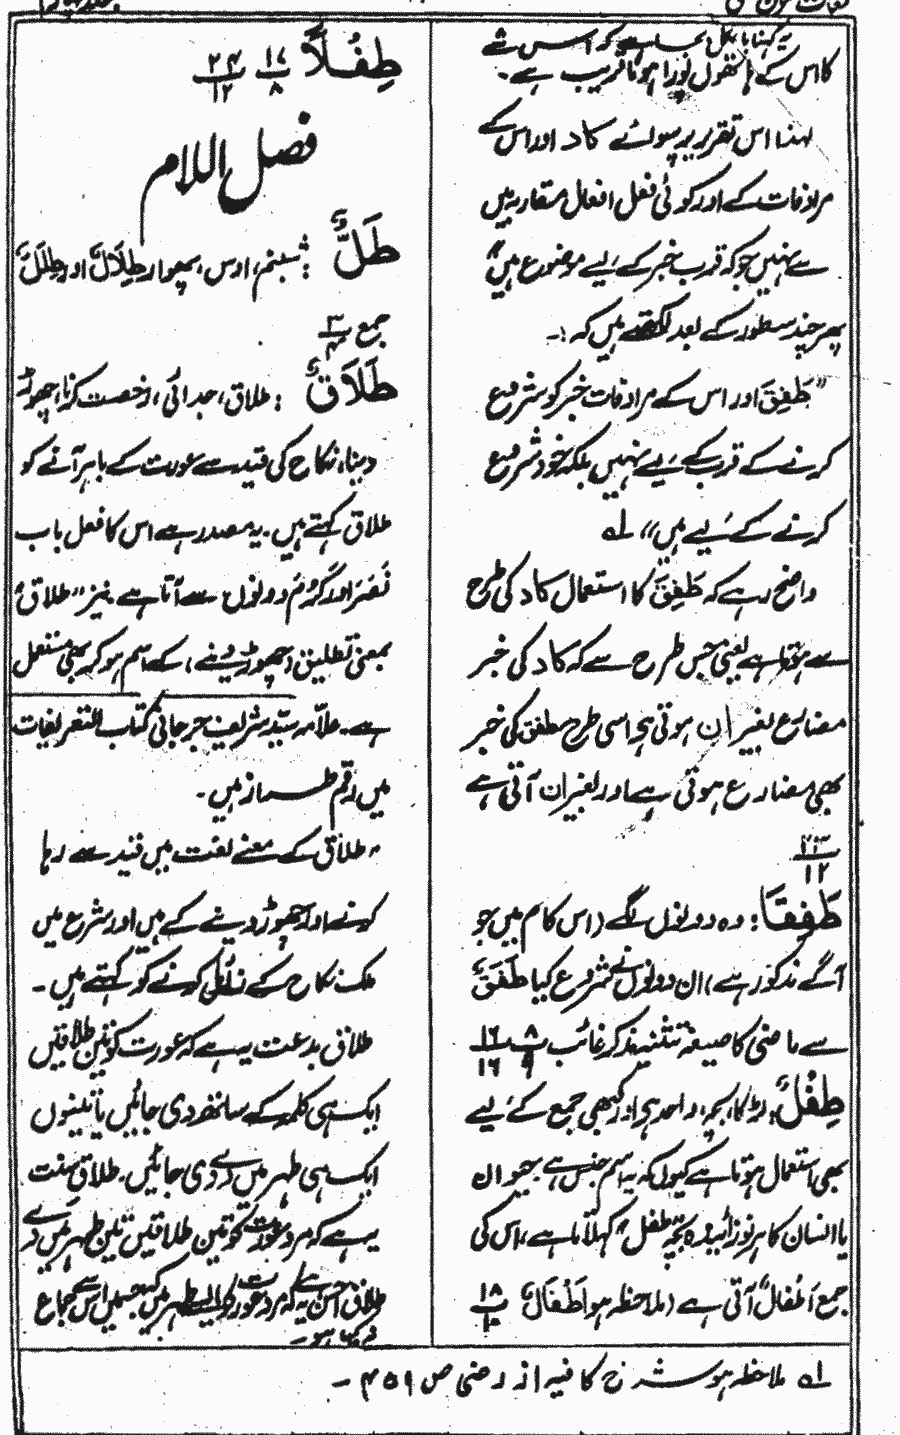 یہ کہنا یا کل
کا اس کے ہاتھوں پورا ہونا قریب ہے۔
لہٰذا اس تقریر پر سوائے کاد اور اس کے
مرادفات کے اور کوئی فعل افعال مقاربہ میں
سے نہیں جو کہ قرب خبر کے لیے موضوع ہیں"
پھر چند سطور کے بعد لکھتے ہیں کہ :۔
"طَفِقَ اور اس کے مرادفات خبر کو شروع
کرنے کے قرب کے لیے نہیں بلکہ خود شروع
کرنے کے لیے ہیں" لہ
واضح رہے کہ طَفِقَ کا استعمال کاد کی طرح
سے ہوتا ہے یعنی جس طرح سے کہ کاد کی خبر
مضارع بغیر ان ہوتی ہے اسی طرح طفق کی خبر
بھی مضارع ہوتی ہے اور بغیر ان آتی ہے
۲۲/۱۲
طَفِقَا: وہ دونوں لگے (اس کام میں جو
آگے مذکور ہے) ان دونوں نے شروع کیا طَفَقَ
سے ماضی کا صیغہ تثنیہ مذکر غائب ۸/۹ ۱۶/۱۶
طِفْلٌ: لڑکا، بچہ، واحد ہے اور کبھی جمع کے لیے
بھی استعمال ہوتا ہے کیوں کہ یہ اسم جنس ہے حیوان
یا انسان کا ہر نوزائیدہ بچہ "طفل" کہلاتا ہے، اس کی
جمع اَطْفَالٌ آتی ہے (ملاحظہ ہو اَطْفَالٌ) ۱۸/۱۰
طِفْلاً ۱۷/۸ ۲۴/۱۲
فصل اللام
طَلٌّ: شبنم، اوس، پھوار طِلَالٌ اور طِلَلٌ
جمع ۳/۴
طَلَاقٌ: طلاق، جدائی، رخصت کرنا، چھوڑ
دینا، نکاح کی قید سے عورت کے باہر آنے کو
طلاق کہتے ہیں۔ یہ مصدر ہے اس کا فعل باب
نَصَرَ اور کَرُمَ دونوں سے آتا ہے نیز "طلاق"
بمعنی تطلیق (چھوڑ دینے) کے اسم ہو کر بھی مستعمل
ہے۔ علامہ سید شریف جرجانی کتاب التعریفات
میں رقم طراز ہیں۔
"طلاق کے معنے لغت میں قید سے رہا
کرنے اور چھوڑ دینے کے ہیں اور شرع میں
ملک نکاح کے زائل کرنے کو کہتے ہیں۔
طلاق بدعت یہ ہے کہ عورت کو تین طلاقیں
ایک ہی کلمہ کے ساتھ دی جائیں یا تینوں
ایک ہی طہر میں دے دی جائیں۔ طلاق سنت
یہ ہے کہ مرد عورت کو تین طلاقیں تین طہر میں دے
طلاق احسن یہ ہے کہ مرد عورت کو ایسے طہر میں کہ جسمیں اس سے جماع
لہ ملاحظہ ہو شرح کافیہ از رضی ص ۴۵۹۔